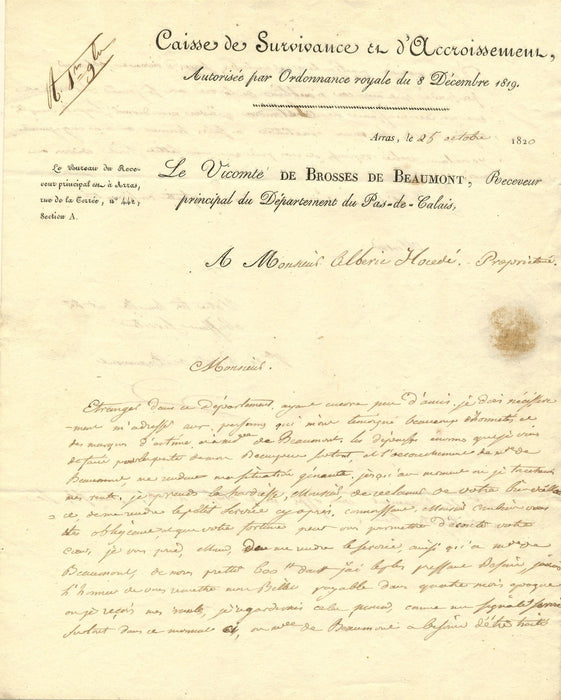 Caisse de Survivance et d'Accroissement,
Autorisée par Ordonnance royale du 8 Décembre 1819.
Arras, le 25 octobre 1820
Le Bureau du Rece-
veur principal est à Arras,
rue de la Terrée, n.° 442,
Section A.
Le Vicomte DE BROSSES DE BEAUMONT, Receveur
principal du Département du Pas-de-Calais,
A Monsieur Alberic Hocedé. Propriétaire
Monsieur.
Etranger dans ce département, ayant encore peu d'amis, je dois nécessaire
-ment m'adresser aux personnes qui m'ont temoigné beaucoup d'honneteté et
des marques d'estime à de Beaumont. les depenses enormes que je viens
de faire pour de mon et l'accouchement de Mde de
Beaumont me rendent ma situation gênante, jusqu'au moment où je toucherai
mes rentes. je prends la hardiesse, Monsieur, de reclamer de votre
ce de me rendre le petit service cy après, connaissant, Monsieur, combien vous
êtes obligeant, et que votre fortune peut vous permettre d'écouter votre
cœur, je vous prie, Monsieur, de me rendre le service, ainsi qu'à Mde de
Beaumont, de nous prêter dont j'ai le plus pressant Besoin, j'aurai
l'honneur de vous remettre mon Billet payable dans quatre mois époque
où je reçois mes rentes, je regarderais cela comme un signalé service
surtout dans ce moment ci, où Mde de Beaumont a besoin d'être